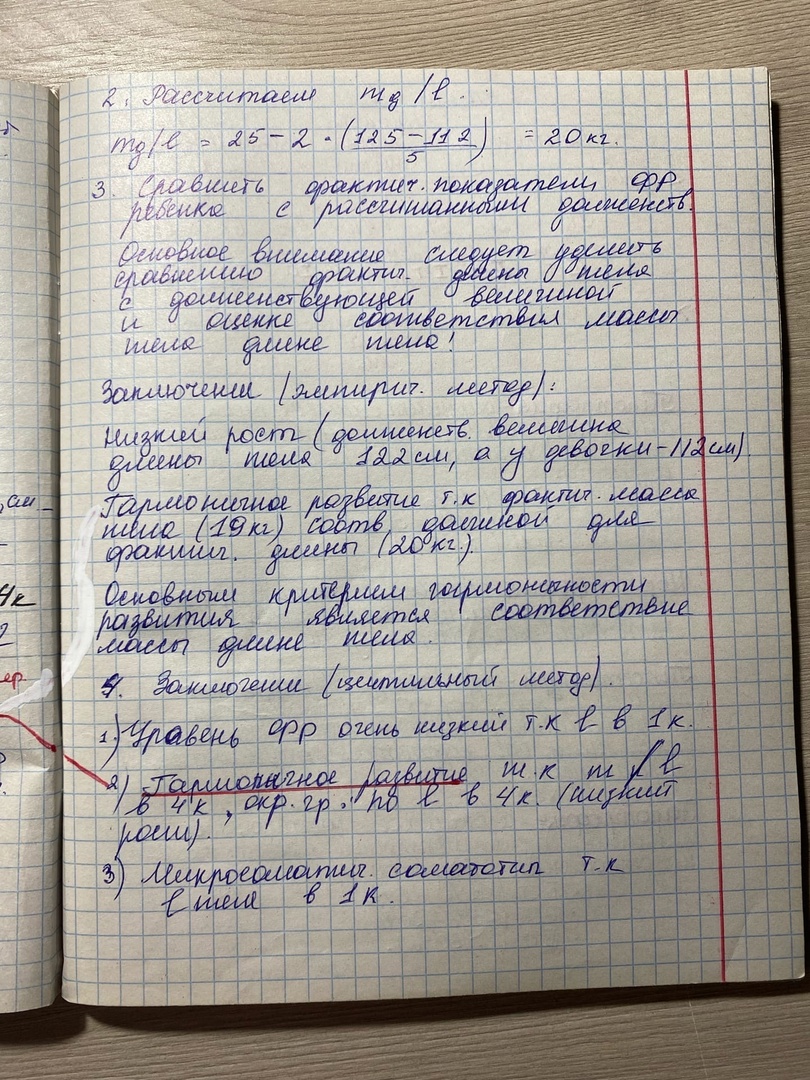 2. Рассчитаем mд/l.
mд/l = 25 - 2 · (125-112/5) = 20 кг.
3. Сравнить фактич. показатели ФР
ребенка с рассчитанными долженств.
Основное внимание следует уделить
сравнению фактич. длины тела
с долженствующей величиной
и оценке соответствия массы
тела длине тела!
Заключение (эмпирич. метод):
Низкий рост (долженств. величина
длины тела 122 см, а у девочки-112 см)
Гармоничное развитие т.к фактич. масса
тела (19 кг) соотв. должной для
фактич. длины (20 кг.).
Основным критерием гармоничности
развития является соответствие
массы длине тела.
4. Заключение (центильный метод).
1) Уровень ФР очень низкий т.к l в 1 к.
2) Гармоничное развитие т.к m/l
в 4к, окр. гр. по l в 4к. (низкий
рост).
3) Микросоматич. соматотип т.к
l тела в 1к.
см
4к
2
ер